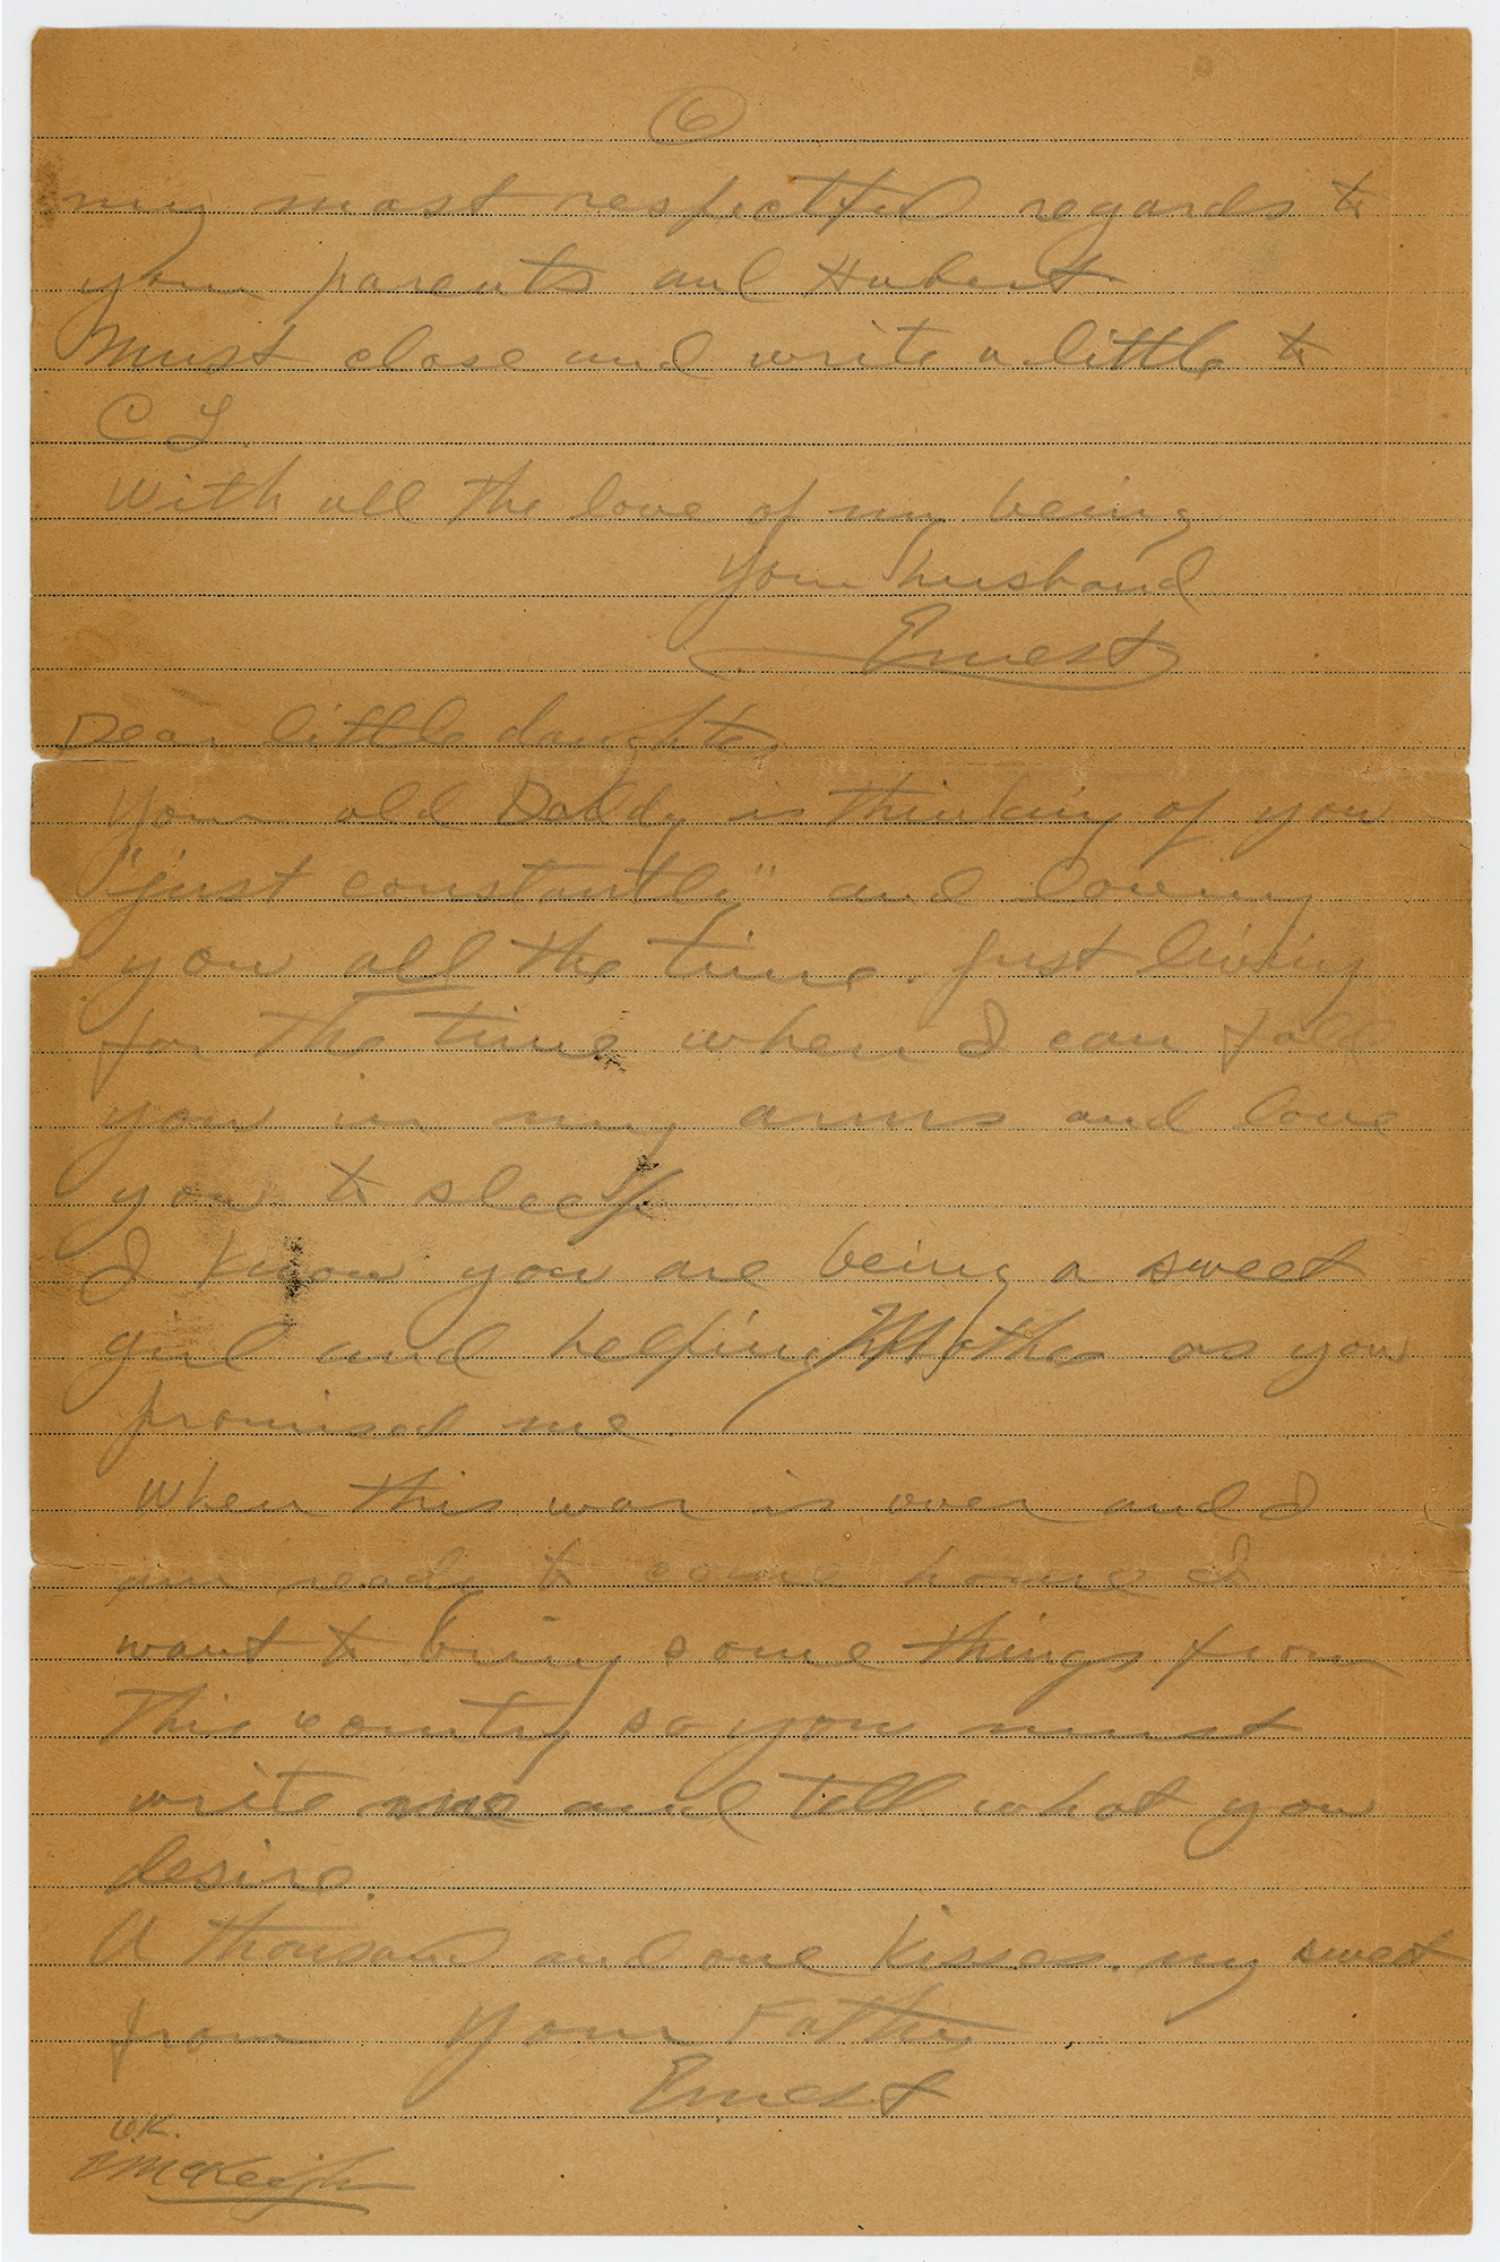 6
my most respectful regards to
your parents and Hubert.
Must close and write a little to
C L.
With all the love of my being
your husband
Ernest
Dear little daughter
Your old Daddy is thinking of you
"just constantly" and loving
you all the time. Just living
for the time when I can fold
you in my arms and love
you to sleep.
I know you are being a sweet
girl and helping Mother as you
promised me.
When this war is over and I
am ready to come home I
want to bring some things from
this country so you must
write me and tell what you
desire.
A thousand and one kisses. my sweet
from your Father
Ernest
O.K.
McKeigh